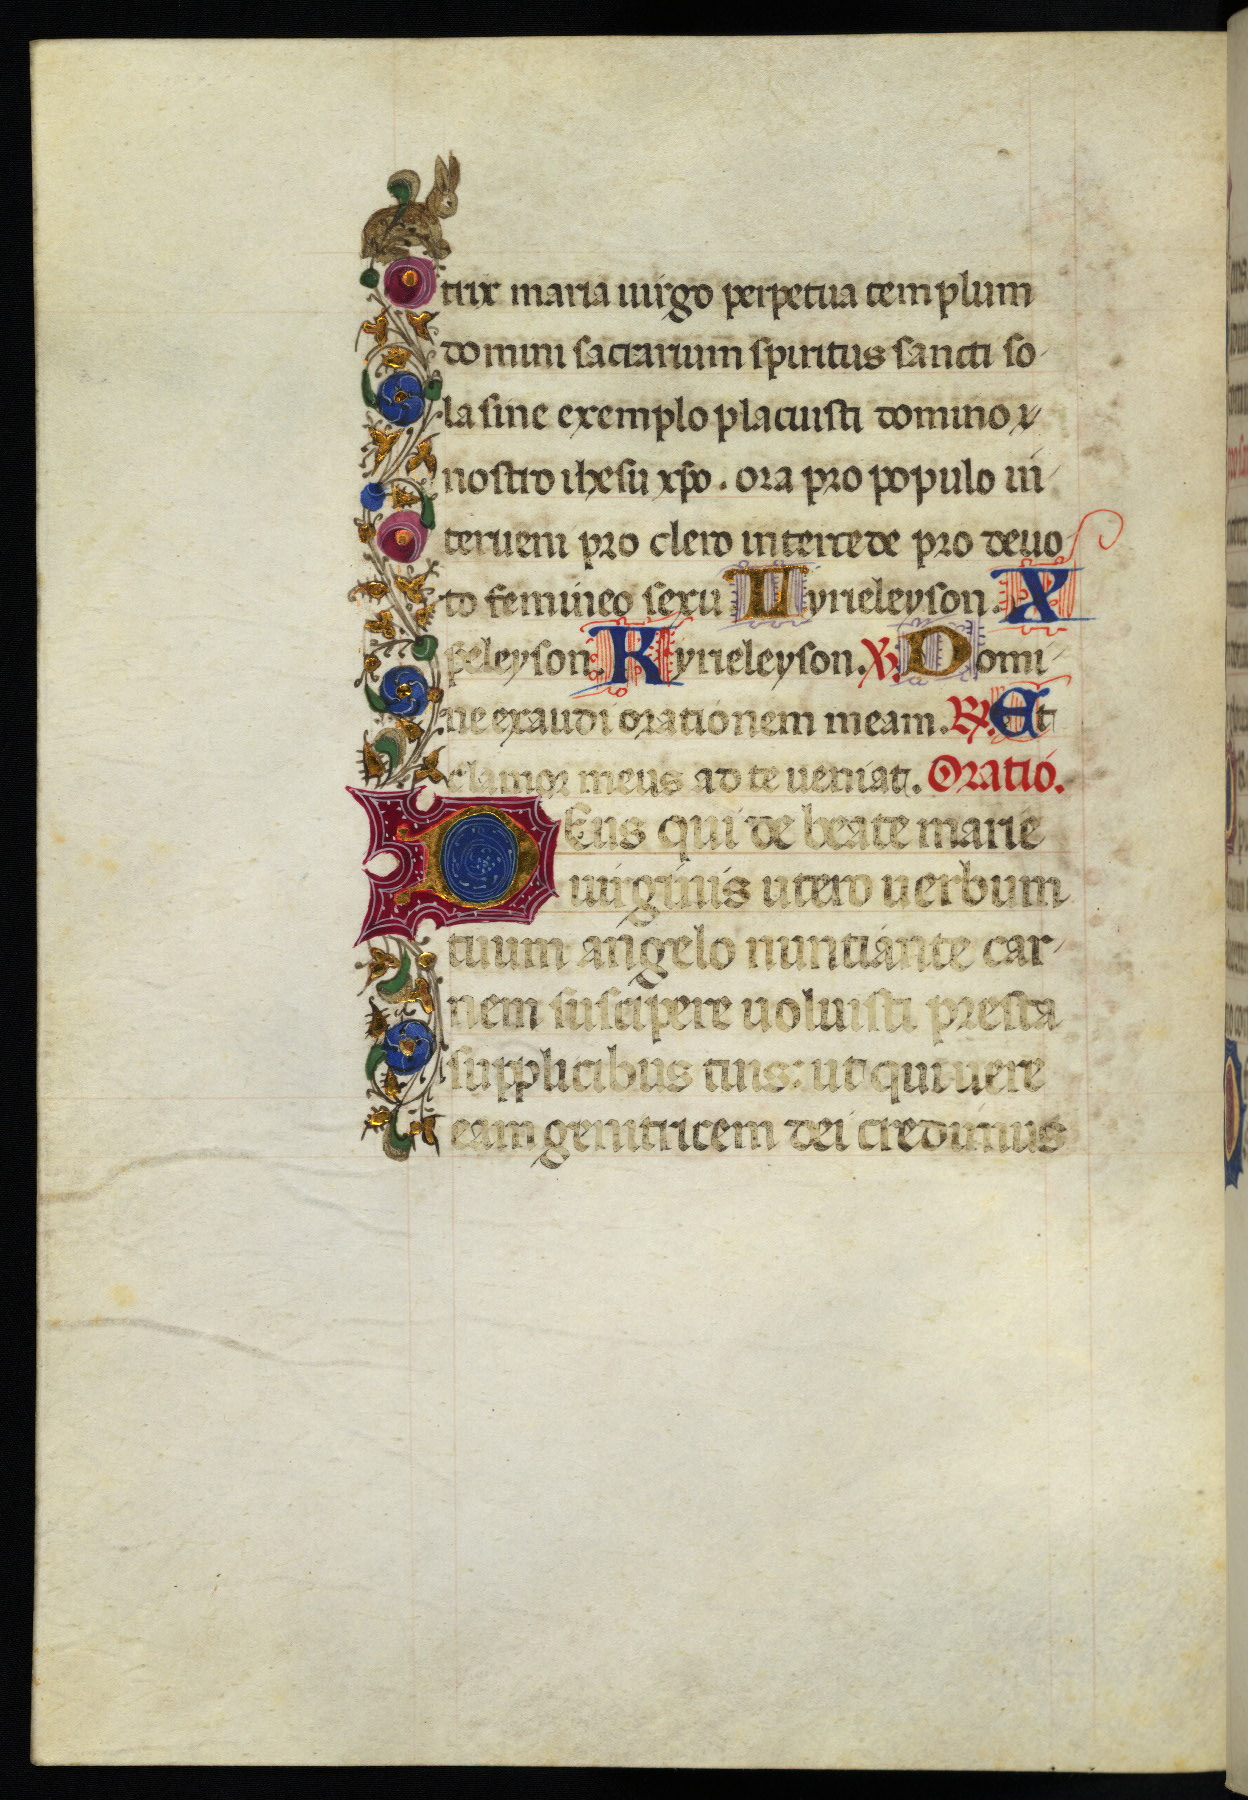 trix maria uirgo perpetua templum
domini sacrarium spiritus sancti so
la sine exemplo placuisti domino
nostro ihesu xpo. ora pro populo in
terueni pro clero intercede pro deuo
to femineo sexu kyrieleyson. X
peleyson. Kyrieleyson. V. Domi
ne exaudi orationem meam. R. Et
clamor meus ad te ueniat. Oratio.
DEus qui de beate marie
uirginis utero uerbum
tuum angelo nuntiante car
nem suscipere uoluisti presta
supplicibus tuis: ut qui uere
eam genitricem dei credimus